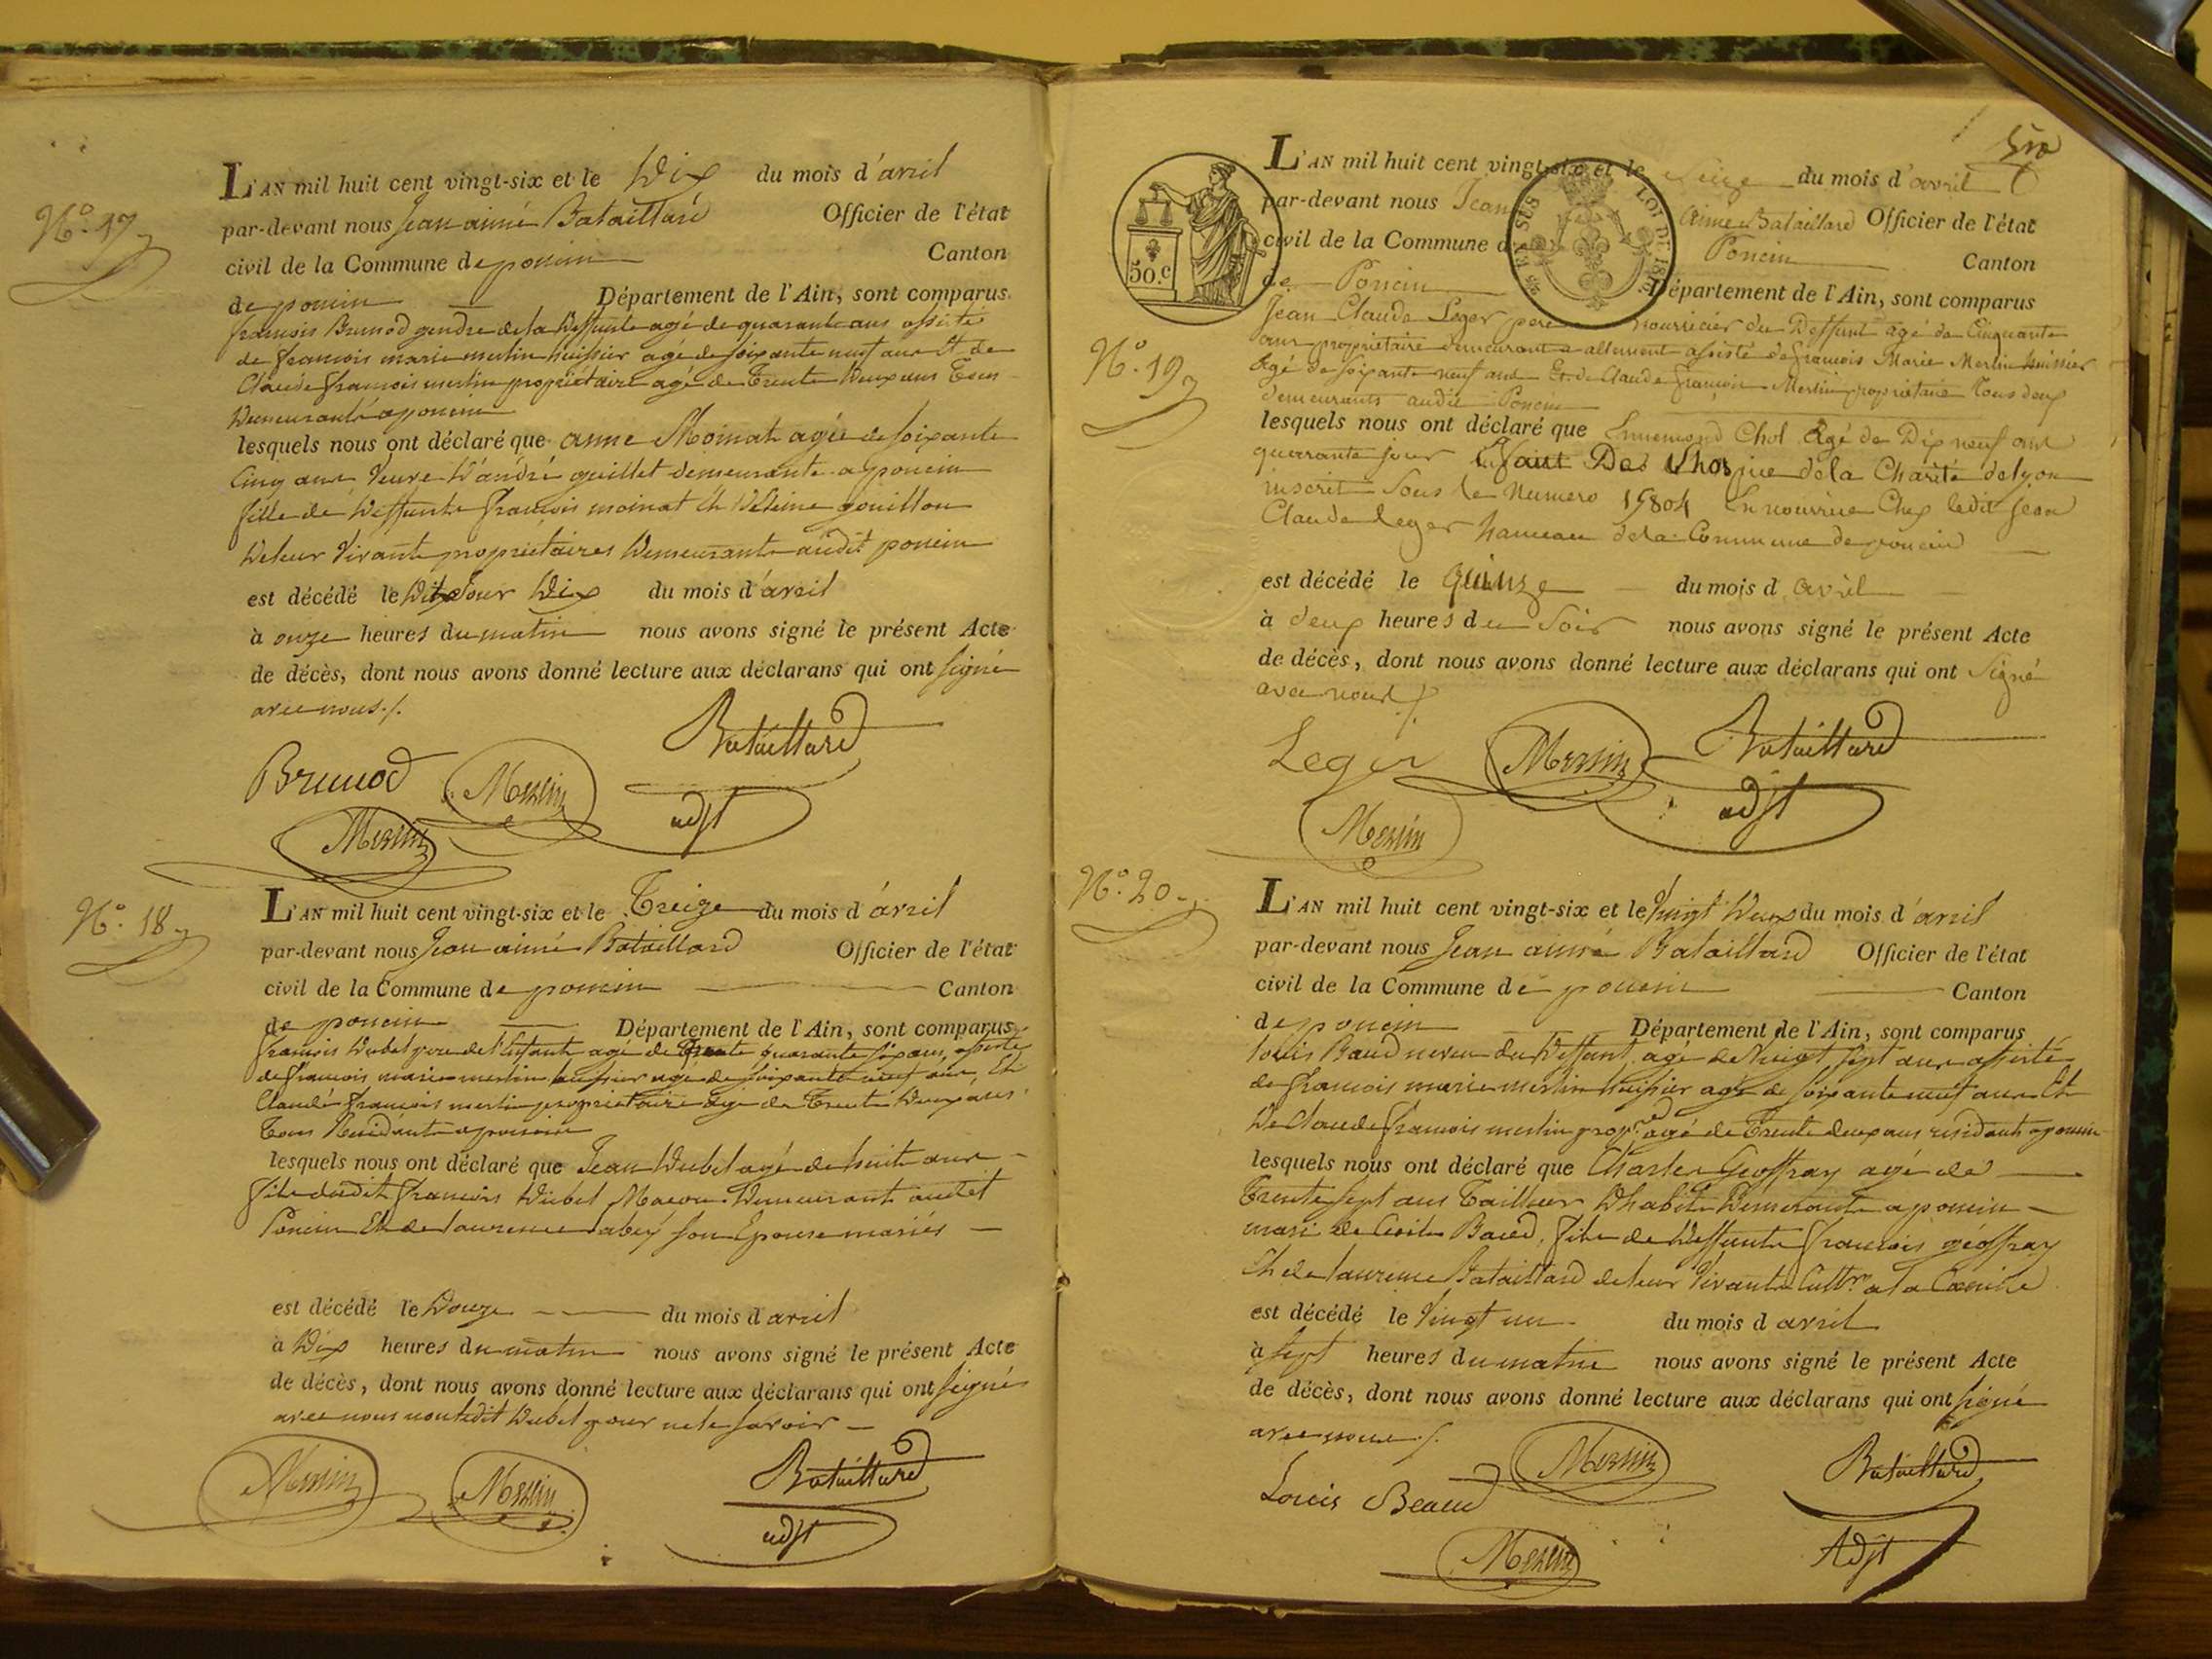 N.º 17
L'AN mil huit cent vingt-six et le Dix du mois d'avril
par-devant nous Jean aimé Bataillard Officier de l'état
civil de la Commune de poncin Canton
de poncin Département de l'Ain, sont comparus
francois Brunod gendre de la Deffunte agé de quarante ans assisté
de francois marie merlin huissier agé de soixante neuf ans Et de
Claude francois merlin propriétaire agé de Trente Deux ans Tous
Demeurants a poncin
lesquels nous ont déclaré que anne Moinat agée de soixante
Cinq ans Veuve D'andré guillet demeurante a poncin
fille de Deffunts francois moinat Et gouillon
De leur Vivants propriétaires Demeurants audit poncin
est décédé le Dix du mois d'avril
à onze heures du matin nous avons signé le présent Acte
de décès, dont nous avons donné lecture aux déclarans qui ont signé
avec nous ./.
Brunod Merlin Bataillard
Merlin adjt
N.º 18
L'AN mil huit cent vingt-six et le Treize du mois d'avril
par-devant nous Jean aimé Bataillard Officier de l'état
civil de la Commune de poncin Canton
de poncin Département de l'Ain, sont comparus
francois Dubel pere de l'Enfant agé de quarante six ans, assisté
de francois marie merlin huissier agé de soixante neuf ans, Et
Claude francois merlin propriétaire agé de Trente Deux ans
Tous Residants a poncin
lesquels nous ont déclaré que Jean Dubel agé de huit ans
fils dudit francois Dubel Macon Demeurant audit
Poncin Et de laurence abey son Epouse mariés
est décédé le Douze du mois d'avril
à Dix heures du matin nous avons signé le présent Acte
de décès, dont nous avons donné lecture aux déclarans qui ont signés
avec nous non ledit Dubel pour ne le savoir
Merlin Merlin Bataillard
adjt
L'AN mil huit cent vingt-six et le seize du mois d'avril
par-devant nous Jean Aimé Bataillard Officier de l'état
civil de la Commune de Poncin Canton
de Poncin Département de l'Ain, sont comparus
50.c
EN SUS LOI DE
N.º 19
Jean Claude Leger pere nourricier du Deffunt agé de Cinquante
ans propriétaire demeurant a allement assisté de francois Marie Merlin huissier
Agé de soixante neuf ans Et de Claude francois Merlin propriétaire Tous deux
demeurants audit Poncin
lesquels nous ont déclaré que Ennemond Chol Agé de Dix neuf ans
quarante jour Enfant Des de la Charité de lyon
inscrit Sous le Numero 15804 En nourrice Chez ledit Jean
Claude leger hameau de la Commune de poncin
est décédé le quinze du mois d avril
à deux heures du Soir nous avons signé le présent Acte
de décès, dont nous avons donné lecture aux déclarans qui ont Signé
avec nous ./.
Leger Merlin Bataillard
Merlin adjt
N.º 20
L'AN mil huit cent vingt-six et le Vingt Deux du mois d'avril
par-devant nous Jean aimé Bataillard Officier de l'état
civil de la Commune de poncin Canton
de poncin Département de l'Ain, sont comparus
louis Baud neveu du Deffunt agé de Vingt sept ans assisté
de francois marie merlin huissier agé de soixante neuf ans Et
De Claude francois merlin propre agé de Trente deux ans residants a poncin
lesquels nous ont déclaré que Charles Geoffray agé de
Trente sept ans Tailleur D'habits Demeurant a poncin
mari de Cecile Baud, fils de Deffunts francois géoffray
Et de laurence Bataillard de leur Vivants Cultrs a la
est décédé le Vingt un du mois d avril
à sept heures du matin nous avons signé le présent Acte
de décès, dont nous avons donné lecture aux déclarans qui ont signé
avec nous ./.
Louis Beaud Merlin Bataillard
Merlin Adjt